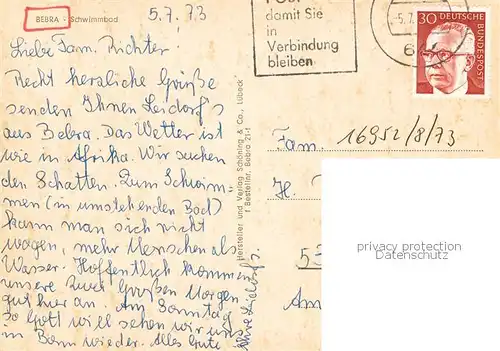 BEBRA - Schwimmbad
5.7.73
Liebe Fam. Richter.
Recht herzliche Grüße
senden Ihnen Leidorf's
aus Bebra. Das Wetter ist
wie in Afrika. Wir suchen
den Schatten. Zum Schwim-
men (in umstehenden Bad)
kann man sich nicht
wagen, mehr Menschen als
Wasser. Hoffentlich kommen
unsere zwei Großen Morgen
gut hier an. Am Sonntag
so Gott will sehen wir uns
in Bonn wieder. Alles Gute
Ihre Leidorf's.
Hersteller und Verlag Schöning & Co., Lübeck
Bestellnr. Bebra 21
damit Sie
in
Verbindung
bleiben
-5.7.
6
30 DEUTSCHE
BUNDESPOST
Fam. 16952/8/73
H.
53
Am
privacy protection
Datenschutz